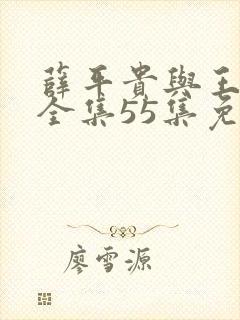 薛平貴與王
全集55集免
廖雪源